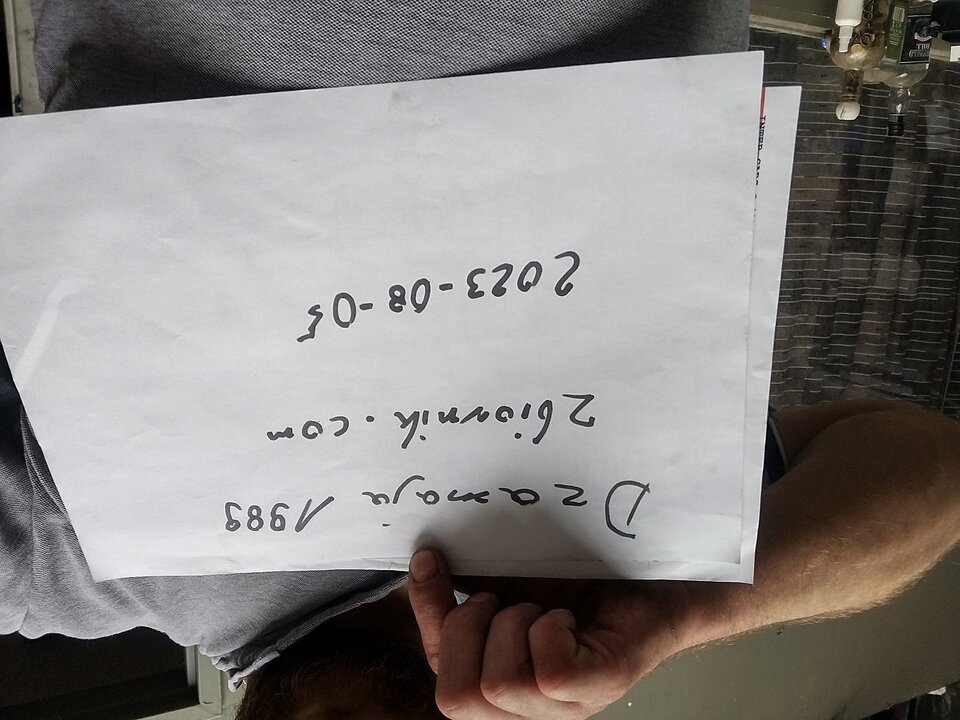 Dzamaja 1989
Zbiornik.com
2023-08-05
BILL